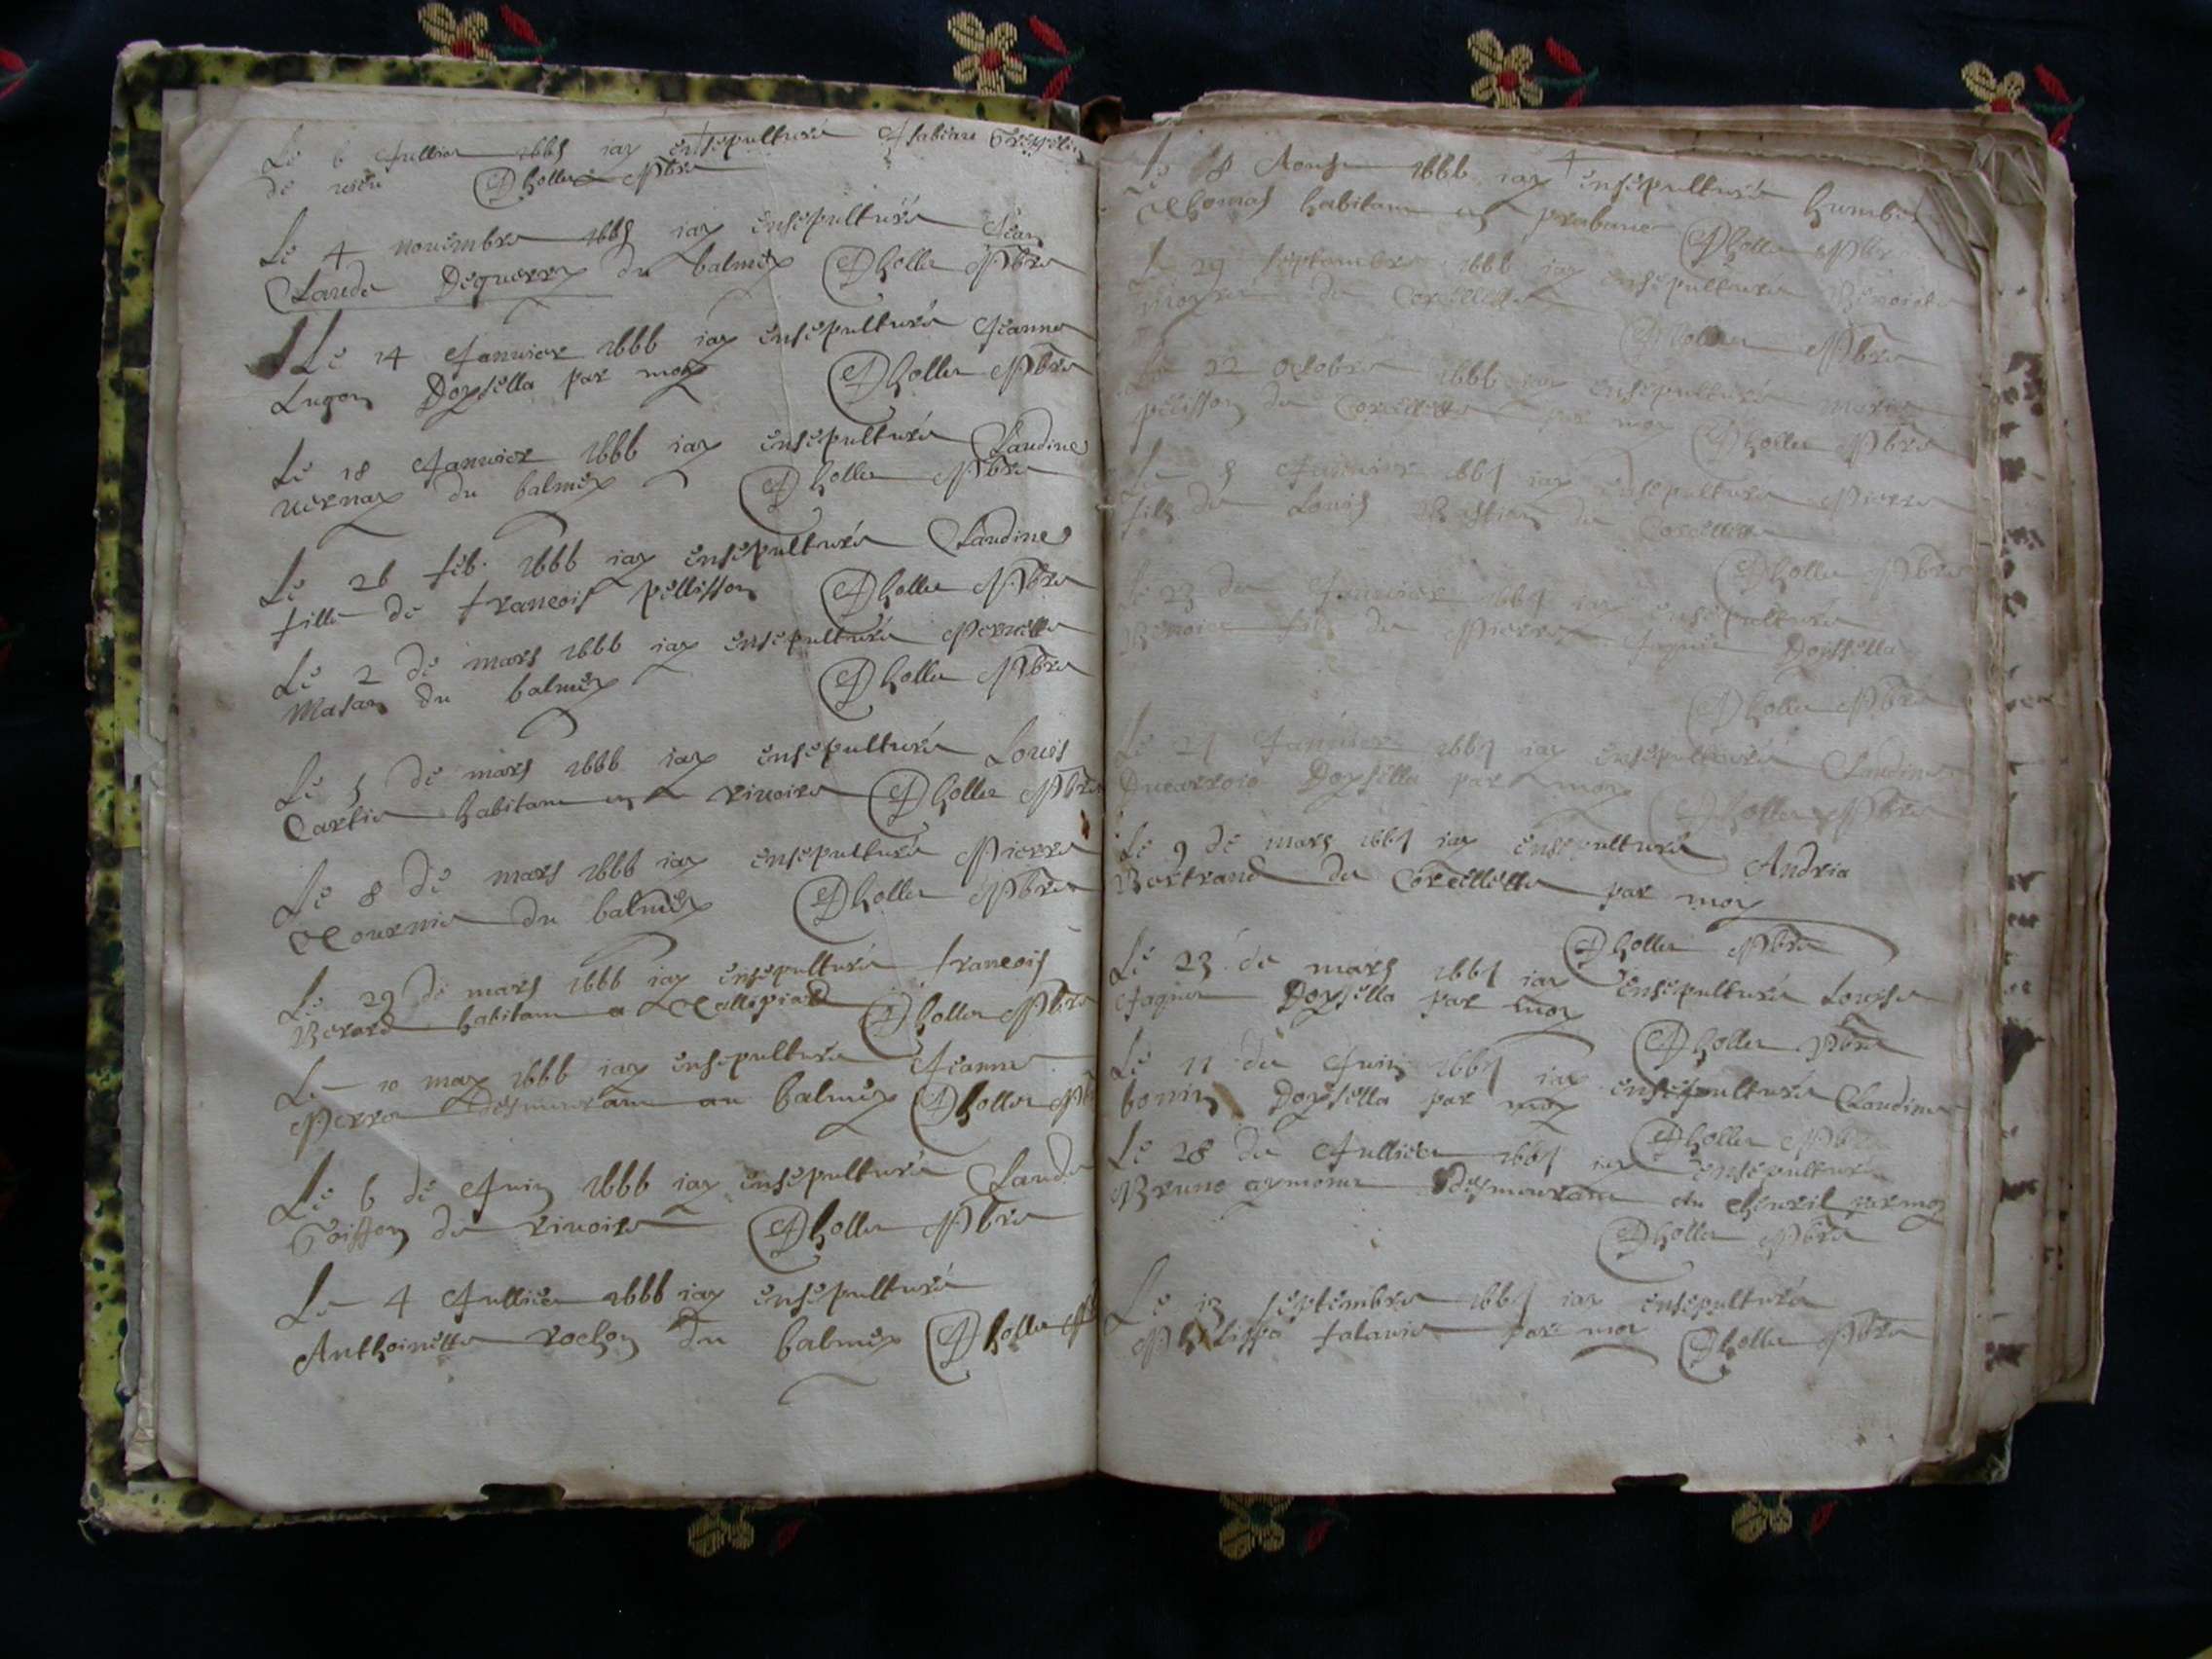 Le 6 Jullier 1665 iay ensepulturé
de Dhollier Pbre
Le 4 nouembre 1665 iay ensepulturé Jean
Claude Deguerry du balmey Dhollier Pbre
Le 14 Januier 1666 iay ensepulturé Jeanne
Lugon Doyssella par moy Dhollier Pbre
Le 18 Januier 1666 iay ensepulturé Claudine
uernay du balmey Dhollier Pbre
Le 26 feb. 1666 iay ensepulturé Claudine
fille de francois pellisson Dhollier Pbre
Le 2 de mars 1666 iay ensepulturé Pernette
Masan du balmey Dhollier Pbre
Le 5 de mars 1666 iay ensepulturé Louis
Cartie habitant en riuoire Dhollier Pbre
Le 8 de mars 1666 iay ensepulturé Pierre
Tournie du balmey Dhollier Pbre
Le 29 de mars 1666 iay ensepulturé francois
Berard habitant a Dhollier Pbre
Le 10 may 1666 iay ensepulturé Jeanne
Perra desmurant au balmey Dhollier Pbre
Le 6 de Juin 1666 iay ensepulturé Claude
de riuoire Dhollier Pbre
Le 4 Jullier 1666 iay ensepulturé
Anthoinette rochon du balmey Dhollier
Le 18 Aoust 1666 iay ensepulturé humbe
Thomas habitant en Dhollier Pbre
Le 29 septembre 1666 iay ensepulturé Benoiste
de Corcellette
Dhollier Pbre
Le 22 octobre 1666 iay ensepulturé marie
pelisson de Corcellette par moy Dhollier Pbre
Le 5 Januier 1667 iay ensepulturé Pierre
filz de Louis de Corcellette
Dhollier Pbre
Le 23 de Januier 1667 iay ensepulturé
Benoict filz de Pierre Doyssella
Dhollier Pbre
Le 27 Januier 1667 iay ensepulturé Claudine
Ducarroio Doyssella par moy
Dhollier Pbre
Le 9 de mars 1667 iay ensepulturé Andria
Bertrand de Corcellette par moy
Dhollier Pbre
Le 23 de mars 1667 iay ensepulturé Louise
Jaquier Doyssella par moy
Dhollier Pbre
Le 11 de Juin 1667 iay ensepulturé Claudine
bonin Doyssella par moy
Dhollier Pbre
Le 28 de Jullier 1667 iay ensepulturé
Bruno aymonier desmurant au chenril par moy
Dhollier Pbre
Le 13 septembre 1667 iay ensepulturé
Philippa falauie par moy Dhollier Pbre